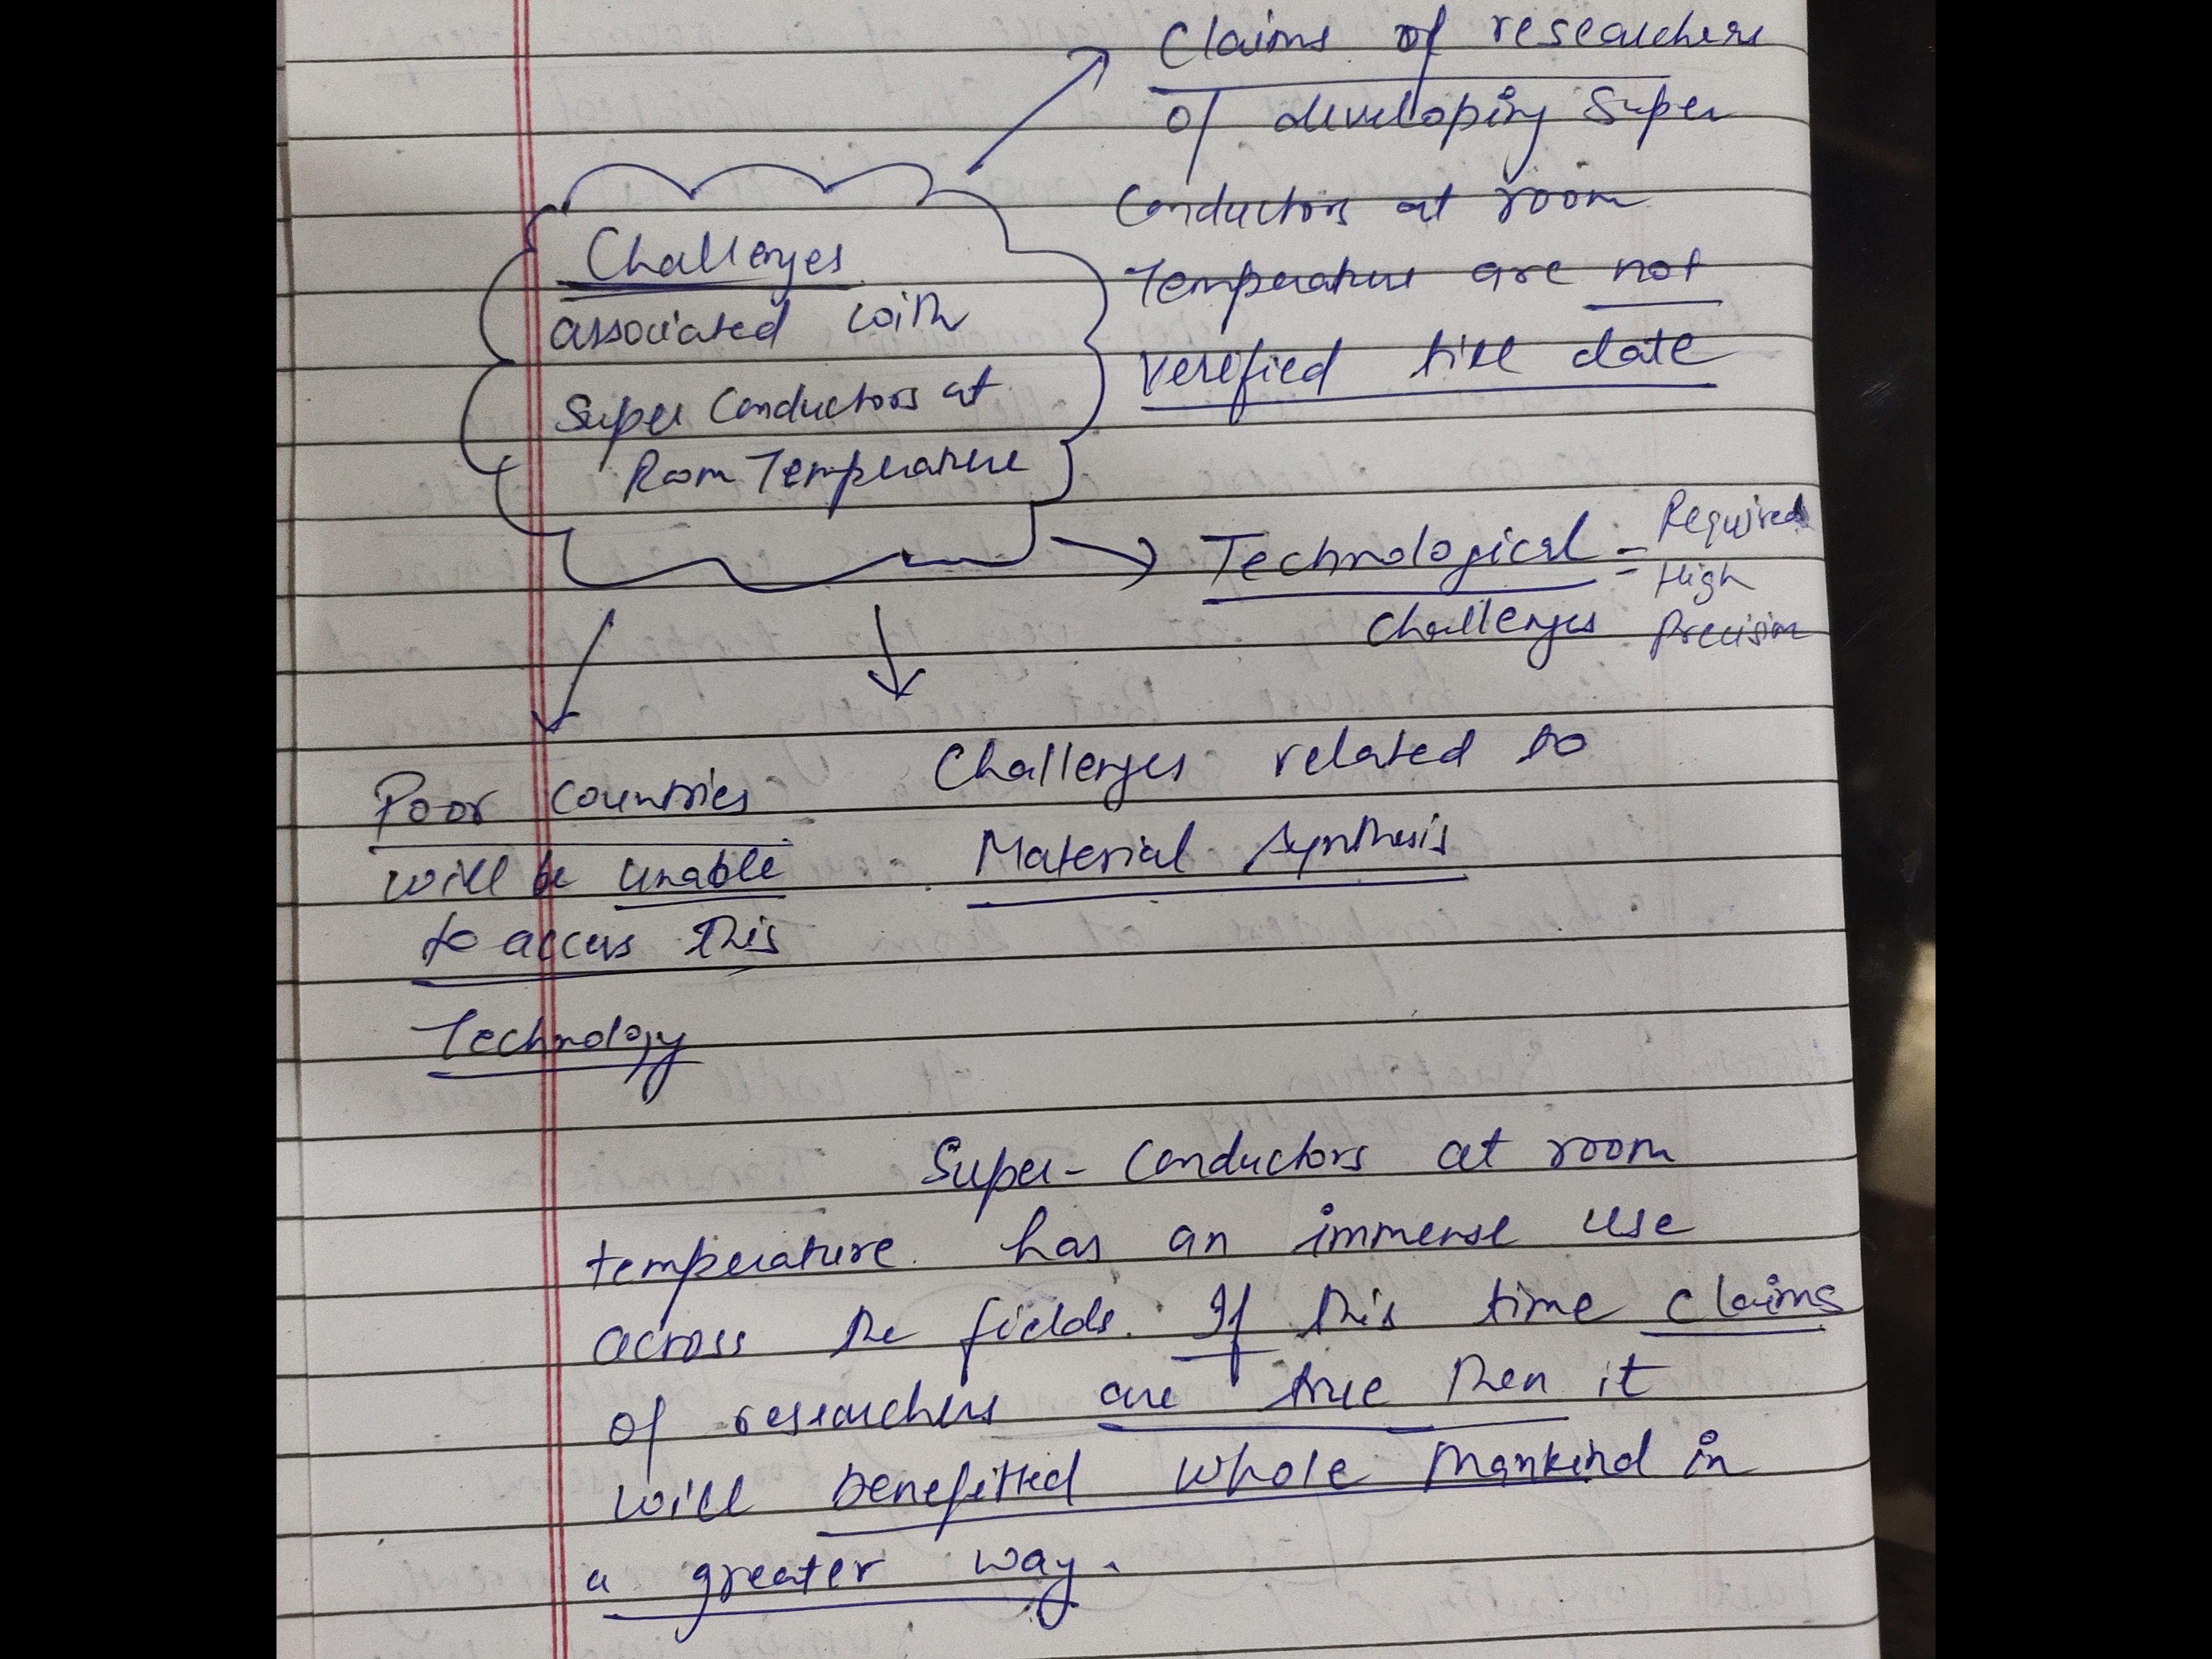 Claims of researchers
of developing Super
Conductors at room
Temperature are not
verefied till date
Challenges
associated with
Super Conductors at
Room Temperature
Technological = Required
High
Challenges Precision
Challenges related to
Material Synthesis
Poor countries
will be unable
to access this
Technology
Super- Conductors at room
temperature has an immense use
across the fields. If this time claims
of researchers are true then it
will benefitted whole mankind in
a greater way.